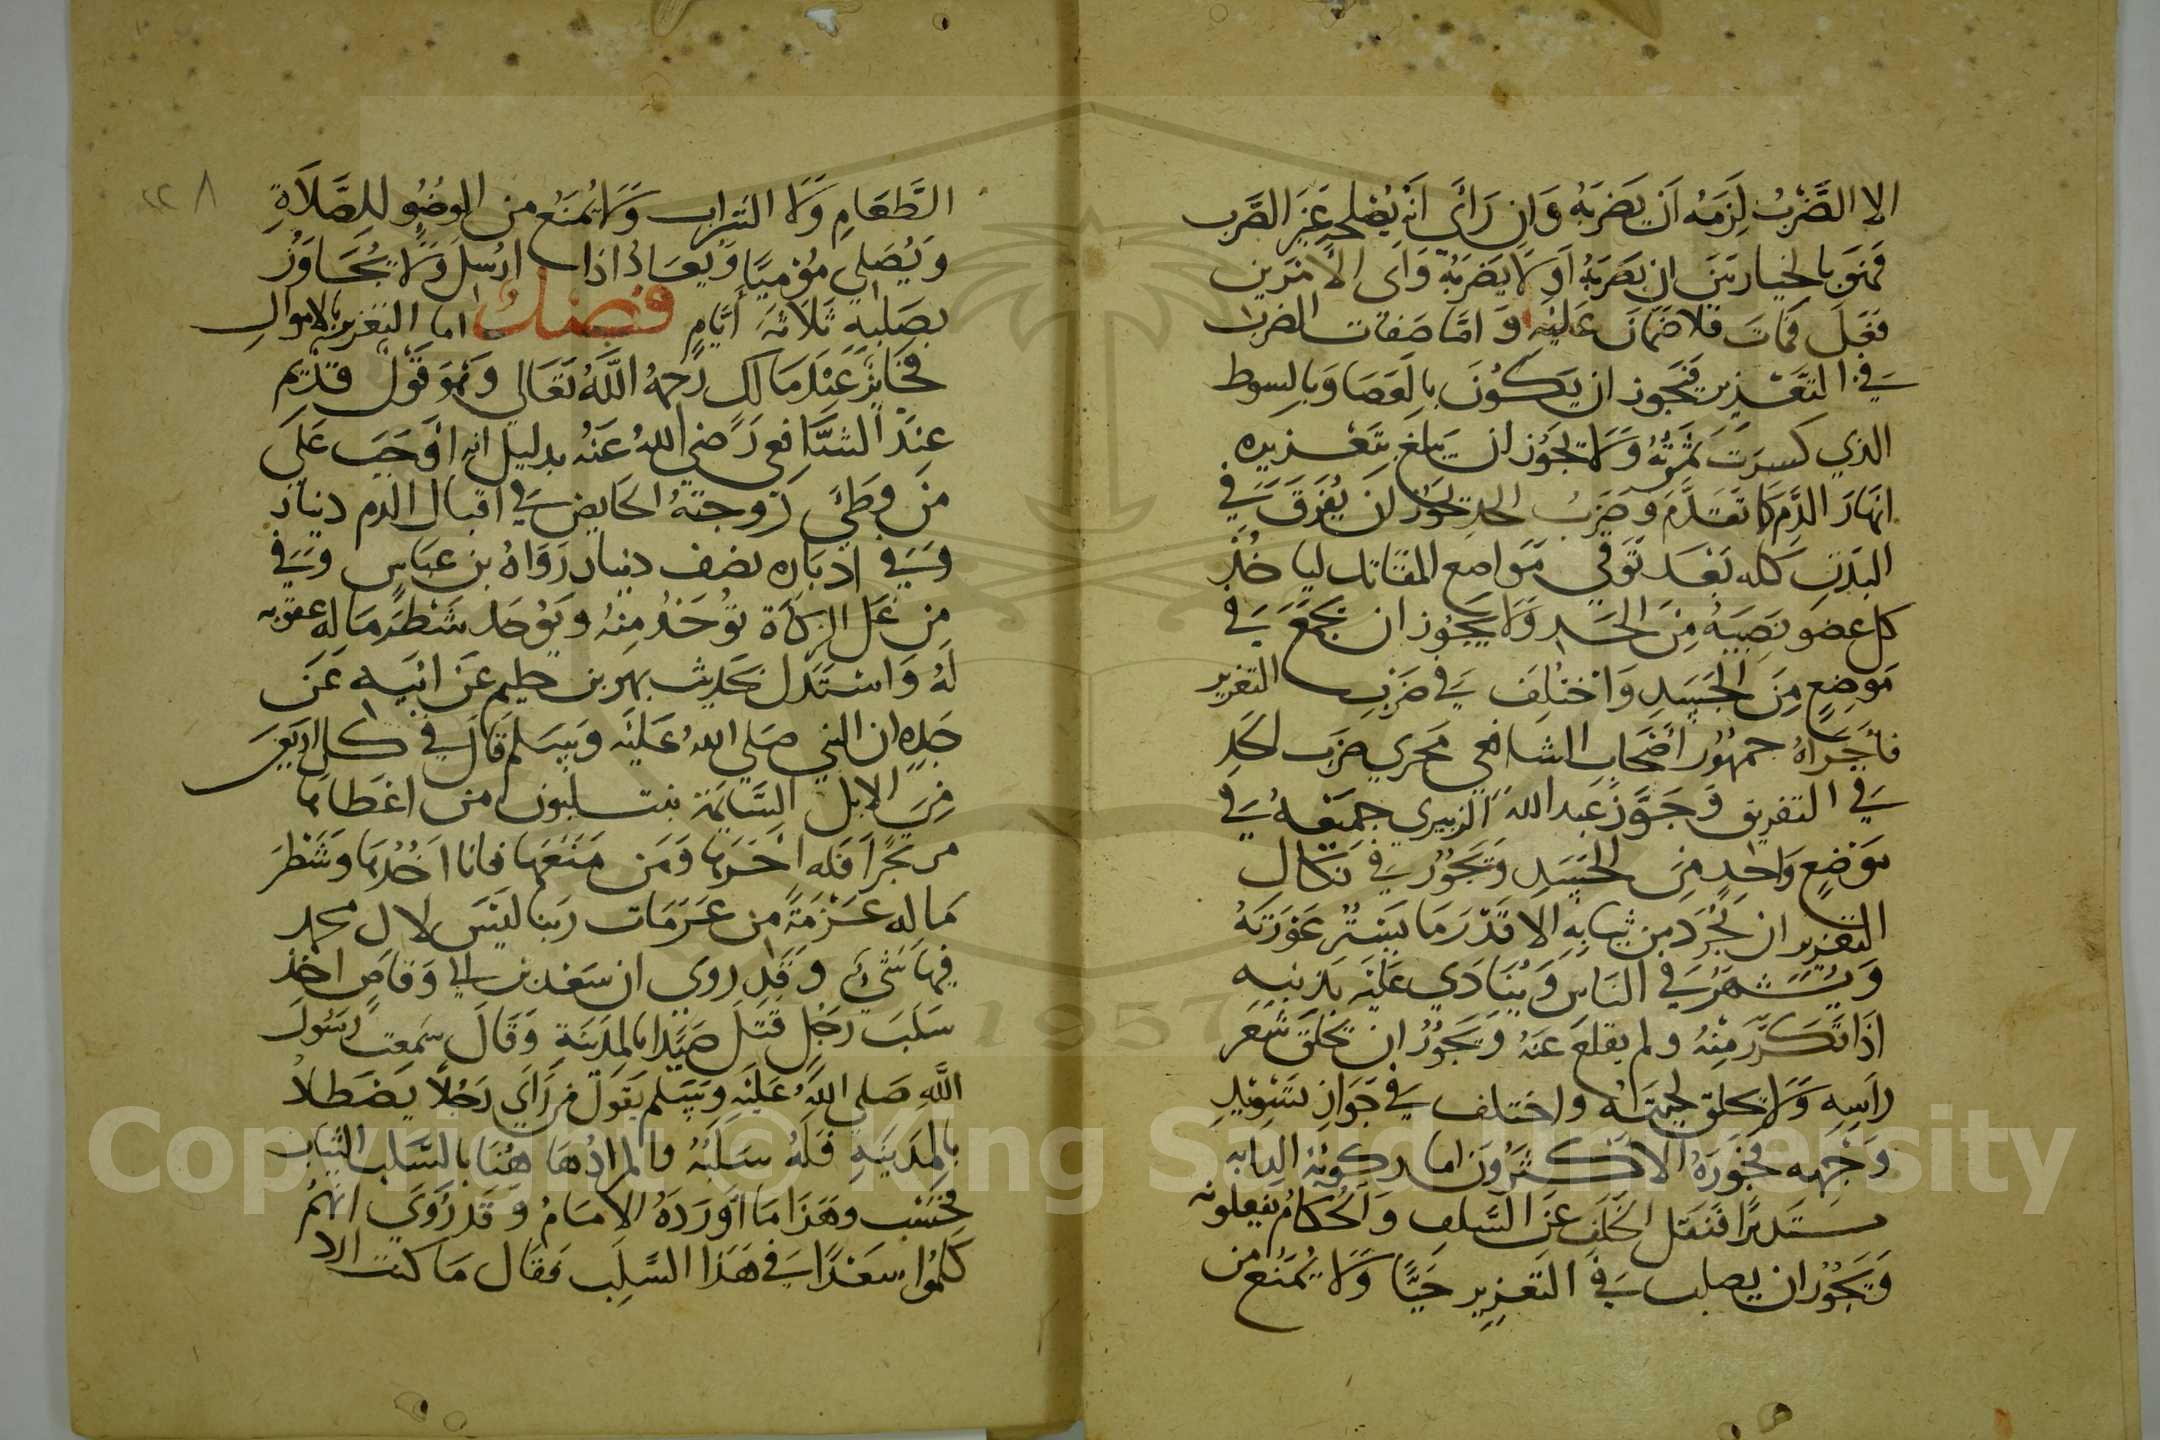 الا الضَّرْبُ لَزِمَهُ اَن يَضربَهُ وَاِن رَائَ اَنهُ يُصْلحه غَيرَ الضَّرب
فَهوَ بالخيار بَيَن ان يَضَربَهُ اَو لاَ يَضربَهُ وَاَى الاَمرَين
فَعَلَ فمَاتَ فلاَ ضمَانَ عَليْهِ وَ امَّا صَفات الضرب
في التَّعْذِير فيَجَوز ان يَكُونَ بِالعَصَا وَبالسوط
الذي كسرَت ثمَرتُهُ وَلاَ يَجَوُز ان يَبلغ بتَعْذيره
انهَارَ الدَّمِ كما تَقَدَّمَ وَضَربُ الحد يَجوُز ان يُفَرَقَ في
البَدَن كله بَعْدَ تَوَقي مَوَاضع المقَاتل لياخُذَ
كل عضو نصَيبَهُ مِنَ الحَد وَلاَ يَجُوز ان يَجمَعَ في
مَوضِعٍ مِنَ الجَسَدِ وَاختلفَ في ضَربِ التعزير
فاَجَراهُ جمهُورُ اَصْحَابِ الشافعي مَجري ضَرَب الحَدِ
في التفريق وَجَوَّزَ عَبد الله الزبيري جمَيعَهُ في
مَوْضعٍ وَاحدٍ مِنَ الجَسَدِ وَيَجَوُز في نكَالِ
التعَزير ان يُجَرَدَ مِن ثيَابِهِ الا قَدْرَ مَا يَستُر عَوْرَتَهُ
وَيُشَهرَ في النَاسِ وَيُنَادَي عَليْهِ بذنبِهِ
اذَا تَكَرَّرَ مِنْهُ ولم يقلعَ عَنهُ وَيَجوُزُ ان يَحلقَ شعَر
راسِهِ وَلاَ يحَلق لحيَتهُ واختلف في جَوَازِ تسَويدِ
وَجهِهِ فجَوزهُ الاكثَرُونَ اما ركوبهُ الدابه
مستَدبرًا فنَقلَ الخَلف عَن السَّلف وَالحُكامُ يَفعلونَه
وَيَجَوُزُ ان يصلب في التَعزِير حَيًّا وَلاَ يُمنَع من
٢٢٨
الطَّعَامِ وَلاَ الشراب وَلاَ يُمنَع من الوضُوِ للِصَّلاَةِ
وَيُصَلي مُؤميًا وَيُعَادُ اذا ارُسلَ وَلاَ يُجَاوَزُ
بصَلبهِ ثَلاَثةَ أَيَّامٍ فصل اما التعَزير بالاموال
فجَايزٌ عِنْدَ مَالك رَحمهُ اللَّهُ تَعَالي وَهوَ قَوْلٌ قَدْيم
عِندَ الشَّافعي رَضي اللهُ عَنهُ بدليل انهِ اوَجَبَ عَلَي
مَن وَطيَ زوجتَهُ الحَايض في اقبال الدم دينار
وَفي ادبَاره نصْف دنيار رَوَاهُ بن عبَاس وَفي
مِن غَل الزكاة تُؤخَذُ مِنْهُ وَيؤخَد شَطرَ مَالِهِ عقوبه
لهُ وَاستَدلَ بحَديث بهز بن حليم عَن ابيَه عَن
جَدِه ان النبي صَلي اللهُ عَليَه وَسَلم قَال في كل اربَعين
مِنَ الابل السَّايمة بنت لبون من اعَطاهَا
مرتجرًا فَله اجَرهَا وَمَن مَنَعَها فانا اخُذُهَا وَشَطْرَ
مَاله عَزمَةً من عَزَمَات ربنا ليَس لال محمد
فيهَا شَيءٌ وَقَد روى ان سَعَد بن ابي وَقاصٍ اخَذَ
سَلبَ رَجُلٍ قتَلَ صَيَدا بالمدينَةِ وَقَالَ سَمعت رَسُولَ
اللَّهِ صَلي اللَّهُ عَليْهِ وَسَلم يَقولَ مَن رَاَي رَجُلاً يَصْطادُ
بالمِدَينَةِ فَلهُ سَلَبُهُ والمرادُ هَا هُنَا بالسَّلب الثيَاب
فحَسْب وَهَذَا مَا اوَرَدَهُ الامَامُ وَقَد رَوَي انَّهمُ
كَلمُوا سَعَدًا في هَذا السَّلِب فقال مَا كنت الارد